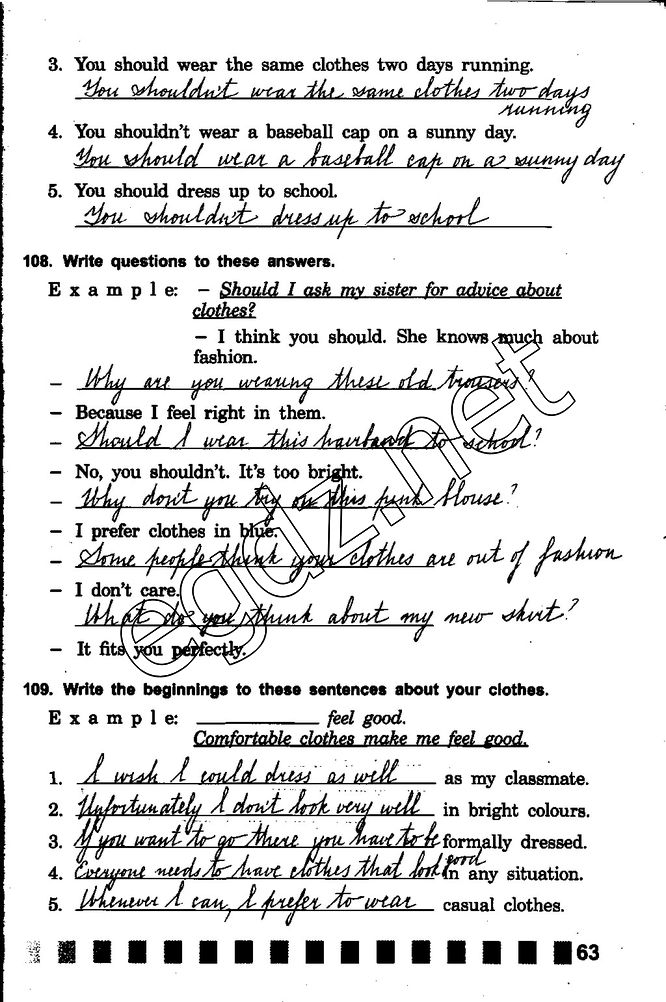 3. You should wear the same clothes two days running.
You shouldn't wear the same clothes two days
running
4. You shouldn't wear a baseball cap on a sunny day.
You should wear a baseball cap on a sunny day
5. You should dress up to school.
You shouldn't dress up to school
108. Write questions to these answers.
Example: – Should I ask my sister for advice about
clothes?
– I think you should. She knows much about
fashion.
– Why are you wearing these old trousers?
– Because I feel right in them.
– Should I wear this hairband to school?
– No, you shouldn't. It's too bright.
– Why don't you try on this pink blouse?
– I prefer clothes in blue.
– Some people think your clothes are out of fashion
– I don't care.
What do you think about my new skirt?
– It fits you perfectly.
109. Write the beginnings to these sentences about your clothes.
Example: ____________ feel good.
Comfortable clothes make me feel good.
1. I wish I could dress as well as my classmate.
2. Unfortunately I don't look very well in bright colours.
3. If you want to go there you have to be formally dressed.
4. Everyone needs to have clothes that look good in any situation.
5. Whenever I can, I prefer to wear casual clothes.
63
egdz.net